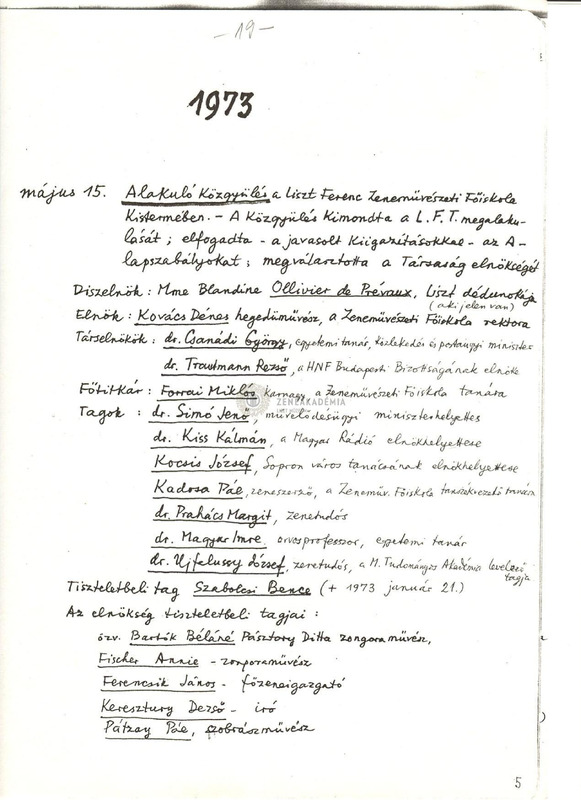 - 19 -
1973
május 15. Alakuló Közgyülés a Liszt Ferenc Zeneművészeti Főiskola
Kistermében. - A Közgyülés Kimondta a L. F. T. megalaku-
lását ; elfogadta - a javasolt Kiigazitásokkal - az A-
lapszabályokat ; megválasztotta a Társaság elnökségét
Diszelnök : Mme Blandine Ollivier de Prévaux, Liszt dédunokája
(aki jelen van)
Elnök : Kovács Dénes hegedüművész, a Zeneművészeti Főiskola rektora
Társelnökök : dr. Csanádi György, egyetemi tanár, közlekedés és postaügyi miniszter
dr. Trautmann Rezső, a HNF Budapesti Bizottságának elnöke
Főtitkár : Forrai Miklós Karnagy, a Zeneművészeti Főiskola tanára
ZENEAKADÉMIA
Tagok : dr. Simó Jenő, művelődésügyi miniszterhelyettes
dr. Kiss Kálmán, a Magyar Rádió elnökhelyettese
Kocsis József, Sopron város tanácsának elnökhelyettese
Kadosa Pál, zeneszerző, a Zeneműv. Főiskola tanszékvezető tanára
dr. Prahács Margit, zenetudós
dr. Magyar Imre, orvosprofesszor, egyetemi tanár
dr. Ujfalussy József, zenetudós, a M. Tudományos Akadémia levelező
tagja
Tiszteletbeli tag Szabolcsi Bence (+ 1973 január 21.)
Az elnökség tiszteletbeli tagjai :
özv. Bartók Béláné Pásztory Ditta zongoraművész,
Fischer Annie - zongoraművész
Ferencsik János - főzeneigazgató
Keresztury Dezső - iró
Pátzay Pál, szobrászművész
5